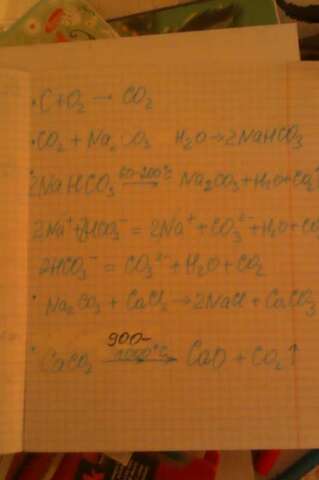 • C + O₂ → CO₂
• CO₂ + Na₂CO₃ H₂O → 2NaHCO₃
• 2NaHCO₃ 60-200°C → Na₂CO₃ + H₂O + CO₂↑
2Na⁺ + 2HCO₃⁻ = 2Na⁺ + CO₃²⁻ + H₂O + CO₂
2HCO₃⁻ = CO₃²⁻ + H₂O + CO₂
• Na₂CO₃ + CaCl₂ → 2NaCl + CaCO₃
• CaCO₃ 900-1000°C → CaO + CO₂↑